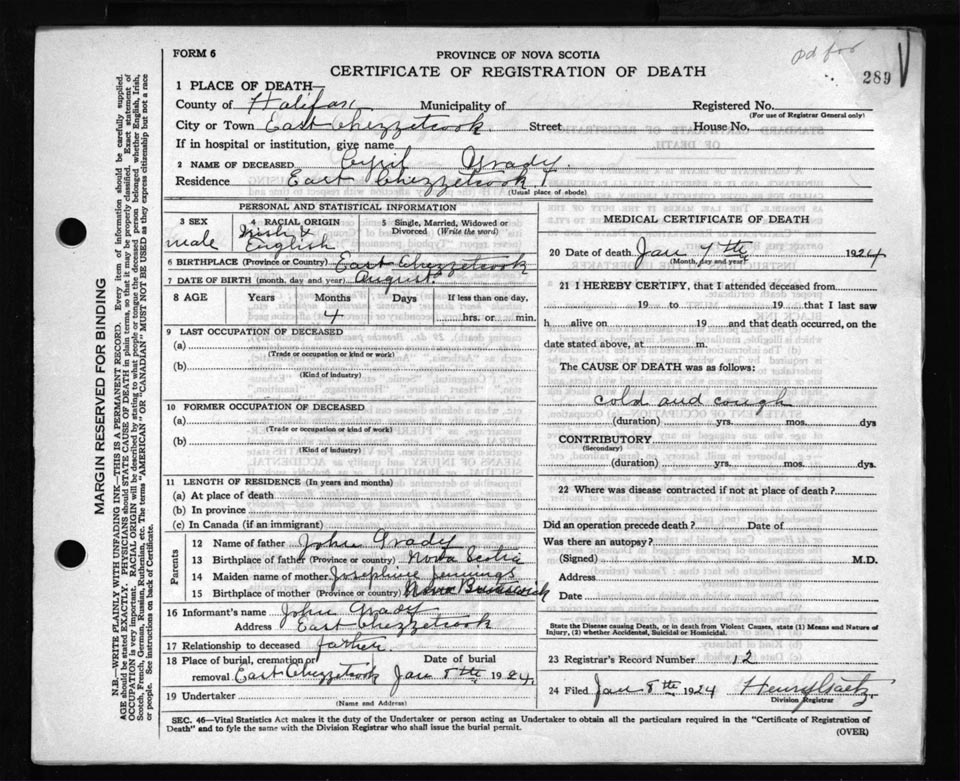 od for
289
FORM 6
PROVINCE OF NOVA SCOTIA
CERTIFICATE OF REGISTRATION OF DEATH
1 PLACE OF DEATH—
County of Halifax Municipality of Registered No.
(For use of Registrar General only)
City or Town East Chezzetcook. Street House No.
If in hospital or institution, give name
2 NAME OF DECEASED Cyril Grady.
Residence East Chezzetcook
(Usual place of abode)
PERSONAL AND STATISTICAL INFORMATION
3 SEX
male
4 RACIAL ORIGIN
Irish &
English
5 Single, Married, Widowed or
Divorced (Write the word)
6 BIRTHPLACE (Province or Country) East Chezzetcook
7 DATE OF BIRTH (month, day, and year) August.
8 AGE Years Months Days If less than one day,
4 hrs. or min.
9 LAST OCCUPATION OF DECEASED
(a)
(Trade or occupation or kind or work)
(b)
(Kind of industry)
10 FORMER OCCUPATION OF DECEASED
(a)
(Trade or occupation or kind of work)
(b)
(Kind of industry)
11 LENGTH OF RESIDENCE (In years and months)
(a) At place of death
(b) In province
(c) In Canada (if an immigrant)
Parents
12 Name of father John Grady
13 Birthplace of father (Province or country) Nova Scotia
14 Maiden name of mother Josephine Jennings
15 Birthplace of mother (Province or country) Brunswick
16 Informant's name John Grady
Address East Chezzetcook
17 Relationship to deceased father
18 Place of burial, cremation or Date of burial
removal East Chezzetcook Jan 8th 1924.
19 Undertaker
(Name and Address)
MEDICAL CERTIFICATE OF DEATH
20 Date of death Jan 7th 1924
(Month, day and year)
21 I HEREBY CERTIFY, that I attended deceased from
19 to 19 that I last saw
h alive on 19 and that death occurred, on the
date stated above, at m.
The CAUSE OF DEATH was as follows:
cold and cough
(duration) yrs. mos. dys
CONTRIBUTORY
(Secondary)
(duration) yrs. mos. dys.
22 Where was disease contracted if not at place of death?
Did an operation precede death? Date of
Was there an autopsy?
(Signed) M.D.
Address
Date
State the Disease causing Death, or in death from Violent Causes, state (1) Means and Nature of
Injury, (2) whether Accidental, Suicidal or Homicidal.
23 Registrar's Record Number 12
24 Filed Jan 8th 1924 Henry Gaetz.
Division Registrar
SEC. 46—Vital Statistics Act makes it the duty of the Undertaker or person acting as Undertaker to obtain all the particulars required in the "Certificate of Registration of
Death" and to fyle the same with the Division Registrar who shall issue the burial permit.
(OVER)
MARGIN RESERVED FOR BINDING
N.B.—WRITE PLAINLY WITH UNFADING INK—THIS IS A PERMANENT RECORD. Every item of information should be carefully supplied.
AGE should be stated EXACTLY. PHYSICIANS should STATE CAUSE OF DEATH in plain terms, so that it may be properly classified. Exact statement of
OCCUPATION is very important. RACIAL ORIGIN will be described by stating to what people or tongue the deceased person belonged whether English, Irish,
Scotch, French, German, Russian, Ruthenian, etc. The terms "AMERICAN" OR "CANADIAN" MUST NOT BE USED as they express citizenship but not a race
or people. See instructions on back of Certificate.